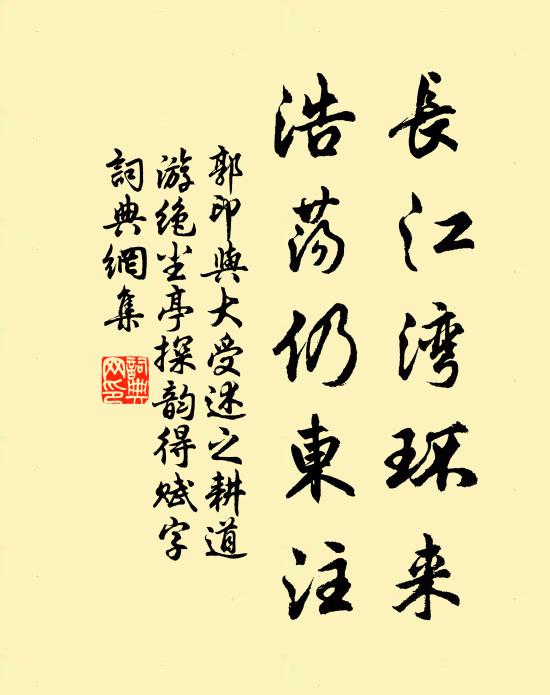 長江湾环来
浩荡仍東注
郭印與大受述之耕道
游绝尘亭探韵得赋字
詞典網集
詞典
网印